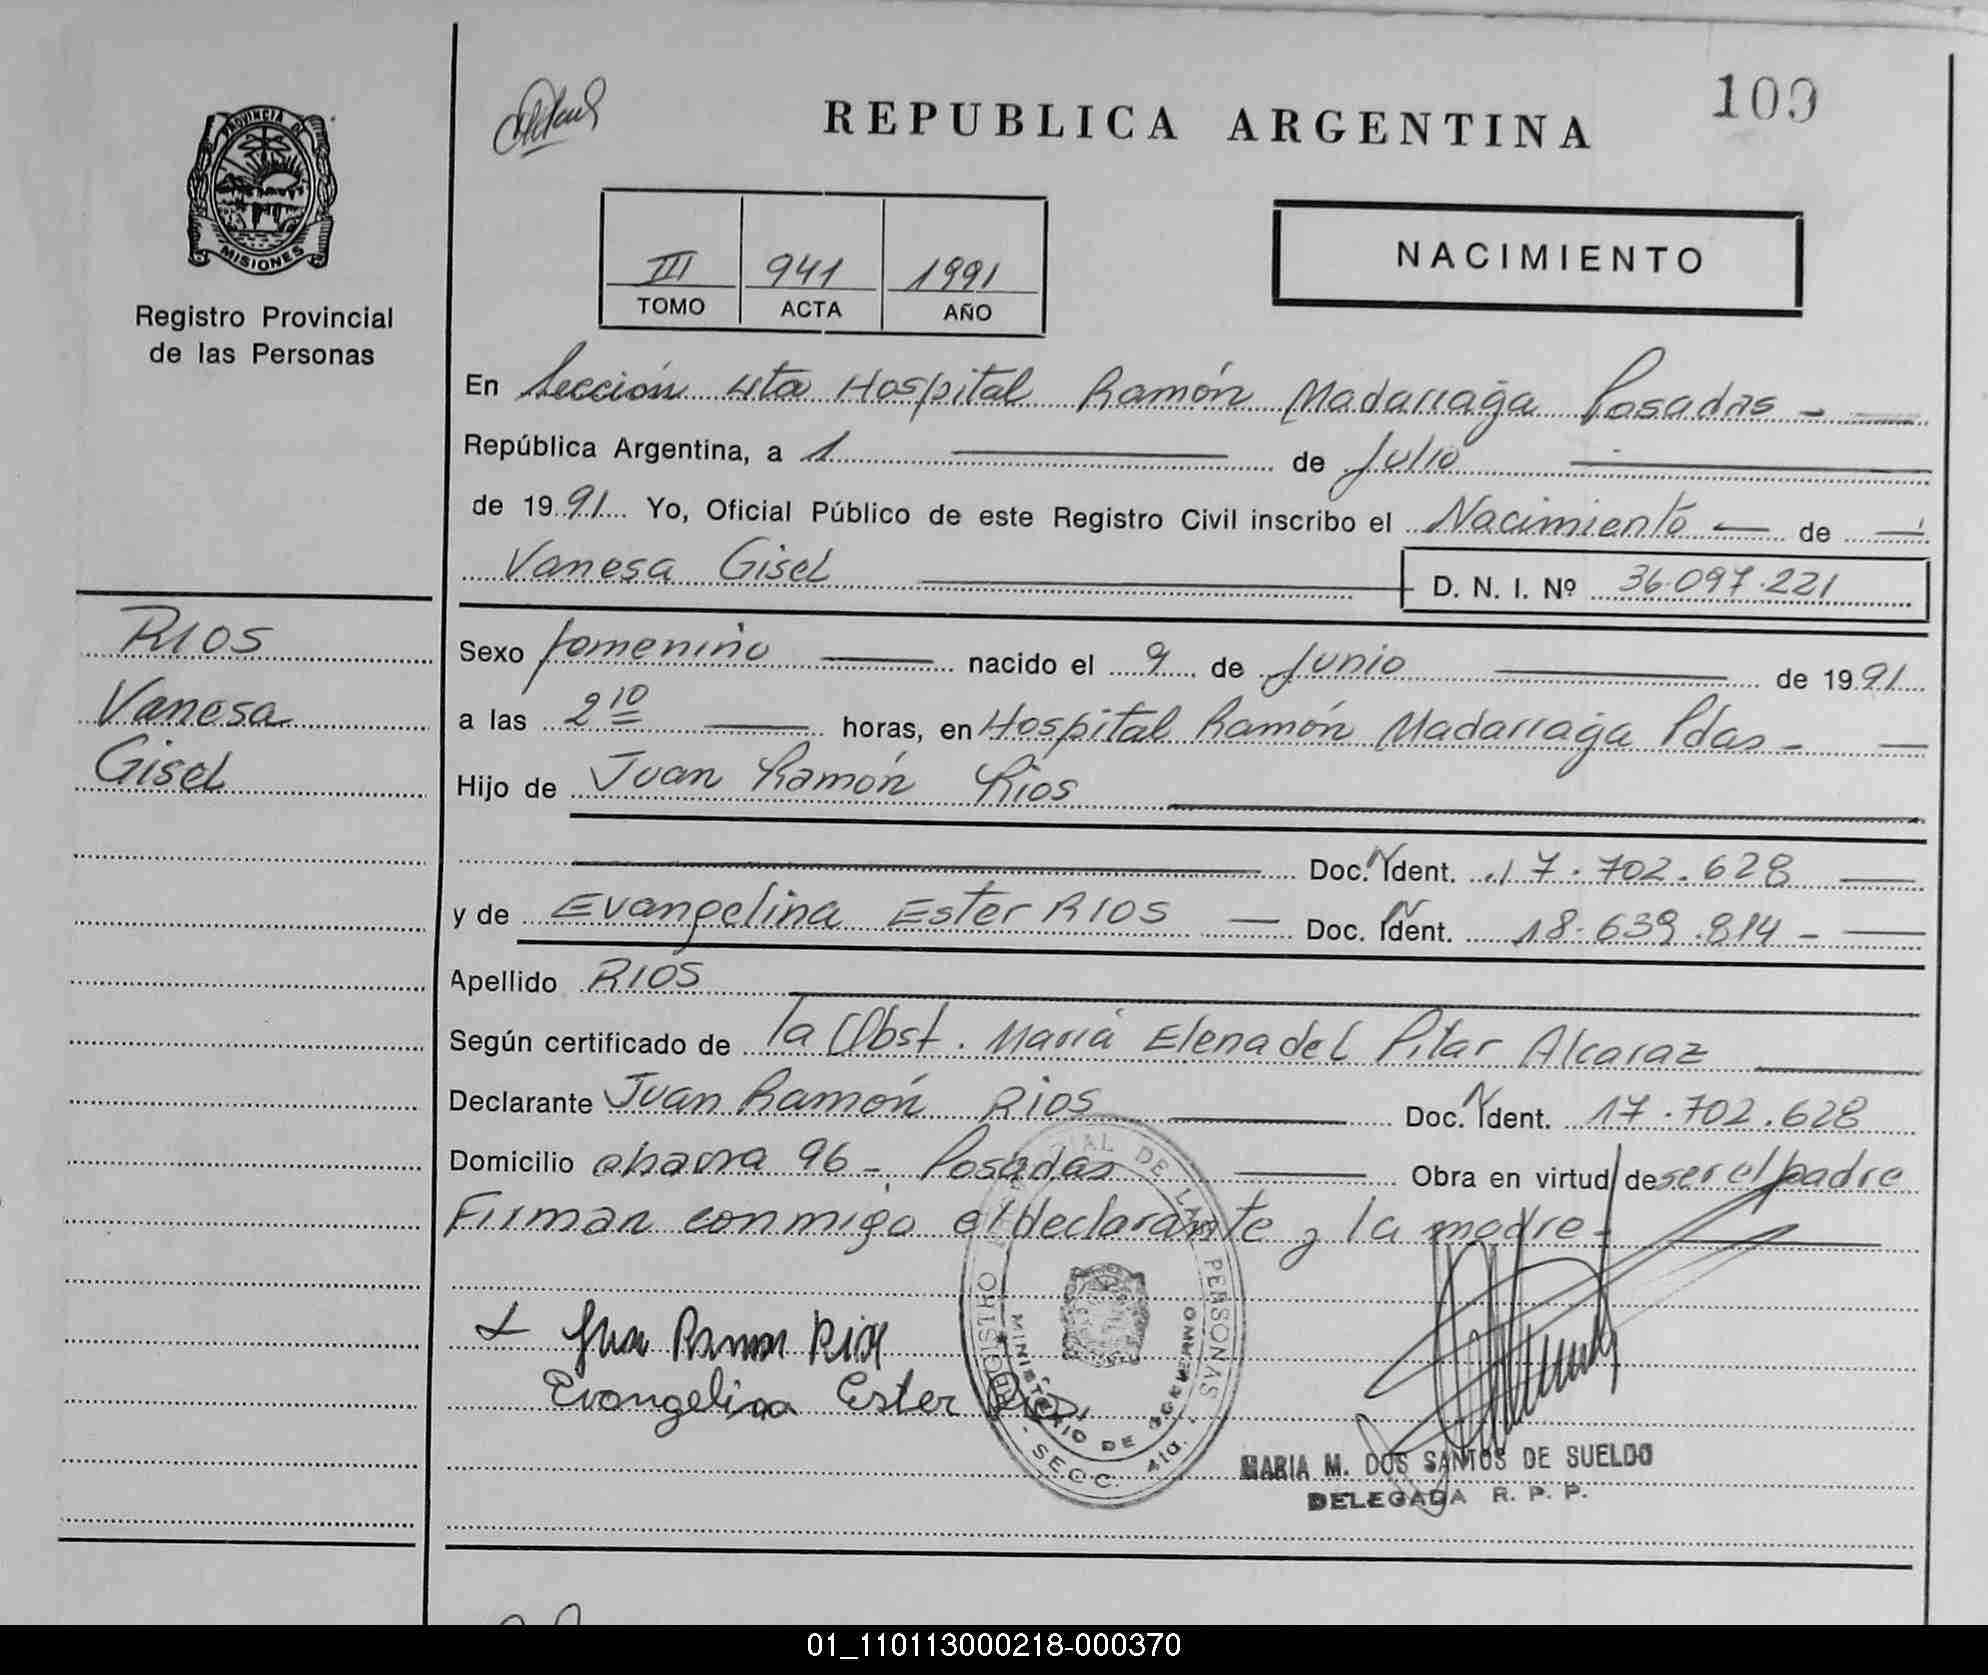 109
REPUBLICA ARGENTINA
PROVINCIA DE
MISIONES
Registro Provincial
de las Personas
III 941 1991
TOMO ACTA AÑO
NACIMIENTO
En Sección 4ta Hospital Ramón Madarriaga Posadas -
República Argentina, a 1 de Julio
de 1991 Yo, Oficial Público de este Registro Civil inscribo el Nacimiento de
Vanesa Gisel D. N. I. Nº 36.097.221
RIOS
Vanesa
Gisel
Sexo femenino nacido el 9 de Junio de 1991
a las 2 10 horas, en Hospital Ramón Madarriaga Pdas -
Hijo de Juan Ramón Rios
Doc. N Ident. 17.702.628
y de Evangelina Ester RIOS Doc. N Ident. 18.639.814 -
Apellido RIOS
Según certificado de la Obst. María Elena del Pilar Alcaraz
Declarante Juan Ramón Rios Doc. N Ident. 17.702.628
Domicilio chacra 96 - Posadas Obra en virtud de ser el padre
Firman conmigo el declarante y la madre -
Juan Ramon Rios
Evangelina Ester Rios
REGISTRO PROVINCIAL DE LAS PERSONAS
MINISTERIO DE GOBIERNO
SECC. 4ta.
MARIA M. DOS SANTOS DE SUELDO
DELEGADA R. P. P.
01_110113000218-000370